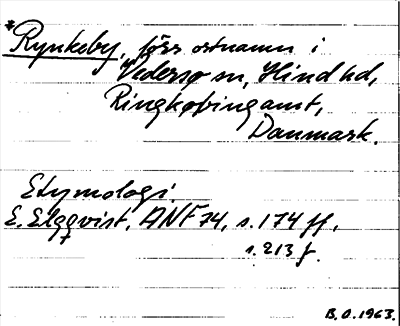 *Rynkeby, förr ortnamn i
Vedersø sn, Hind hd,
Ringkøbing amt,
Danmark.
Etymologi
E. Elgqvist, ANF 74, s. 174 ff,
s. 213 f.
B.O. 1963.